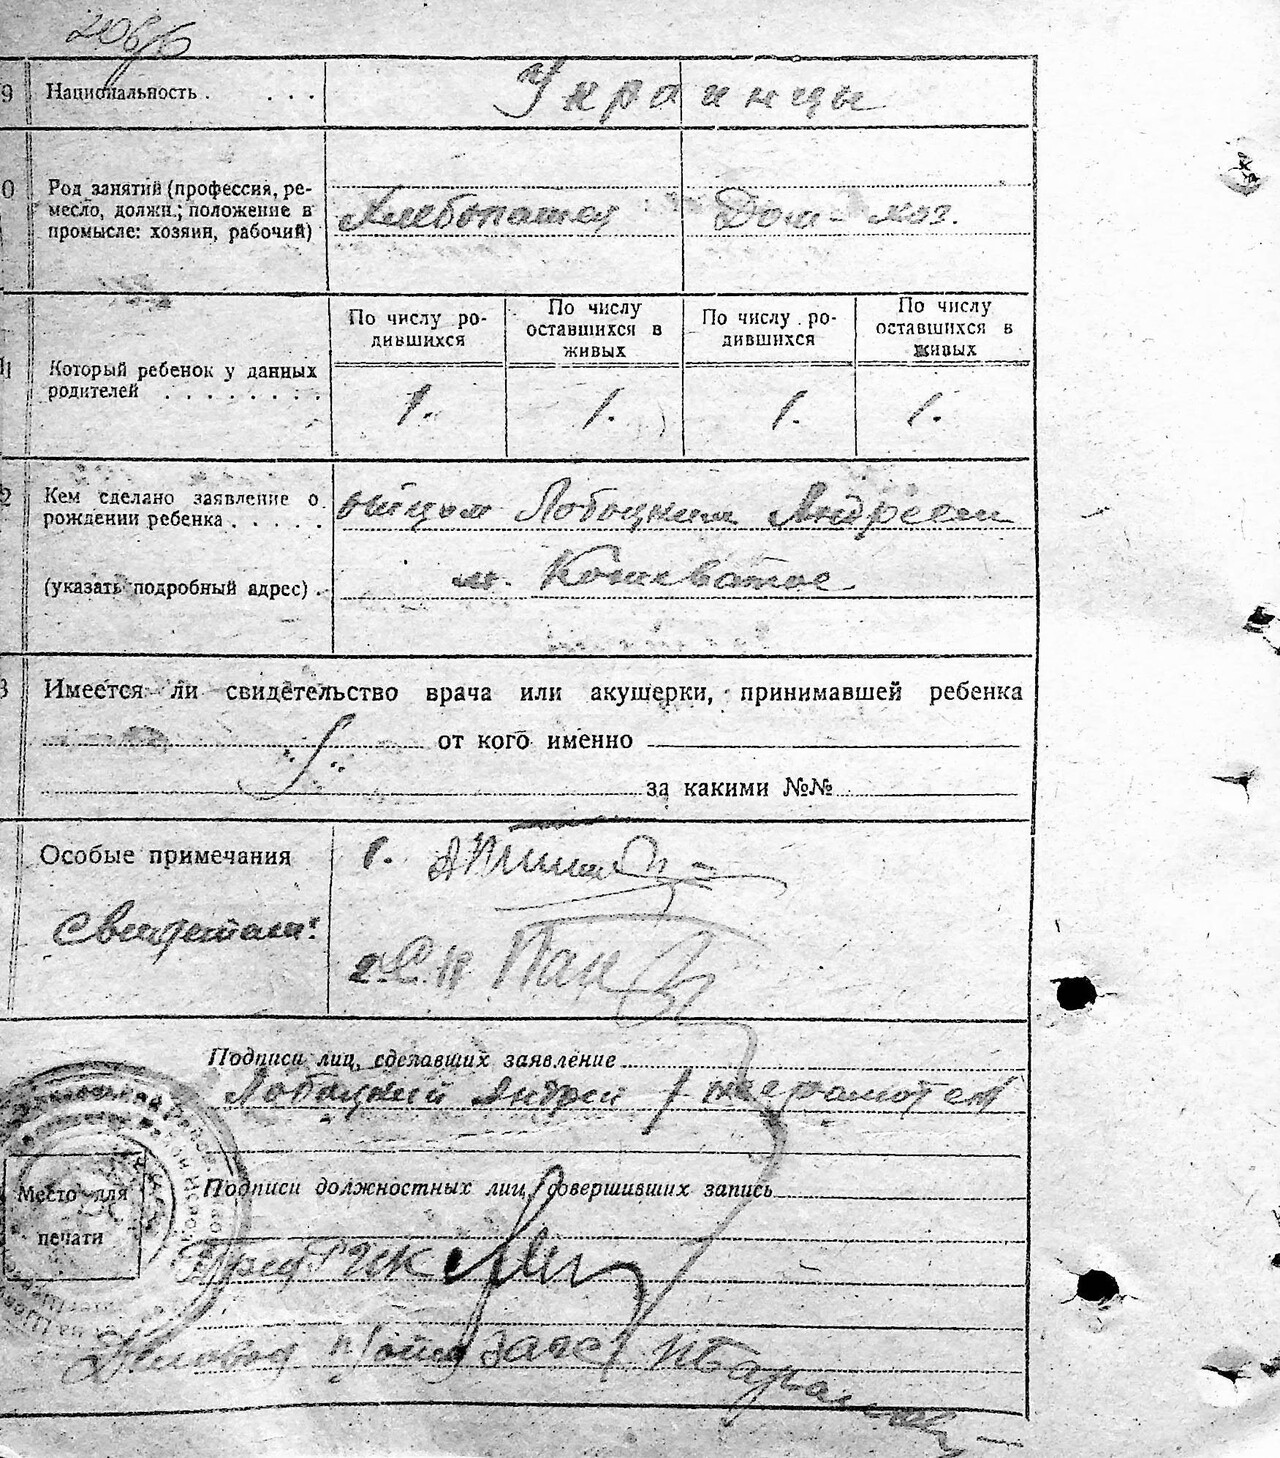 9 Национальность . . . . Украинцы
0 Род занятий (профессия, ре-
месло, должн.; положение в
промысле: хозяин, рабочий)
Хлебопашец Дом-хоз.
По числу ро-
дившихся
По числу
оставшихся в
живых
По числу ро-
дившихся
По числу
оставшихся в
живых
11 Который ребенок у данных
родителей . . . . . . . .
1. 1. 1. 1.
2 Кем сделано заявление о
рождении ребенка . . . . .
отцом Лобоцким Андреем
(указать подробный адрес) .
м. Кошеватое
3 Имеется ли свидетельство врача или акушерки, принимавшей ребенка
от кого именно
за какими №№
Особые примечания
1.
Свидетели:
2.
Подписи лиц, сделавших заявление
Лобоцкий Андрей / неграмотен
Место для
печати
Подписи должностных лиц, совершивших запись
Пред РИК
Деловод загс